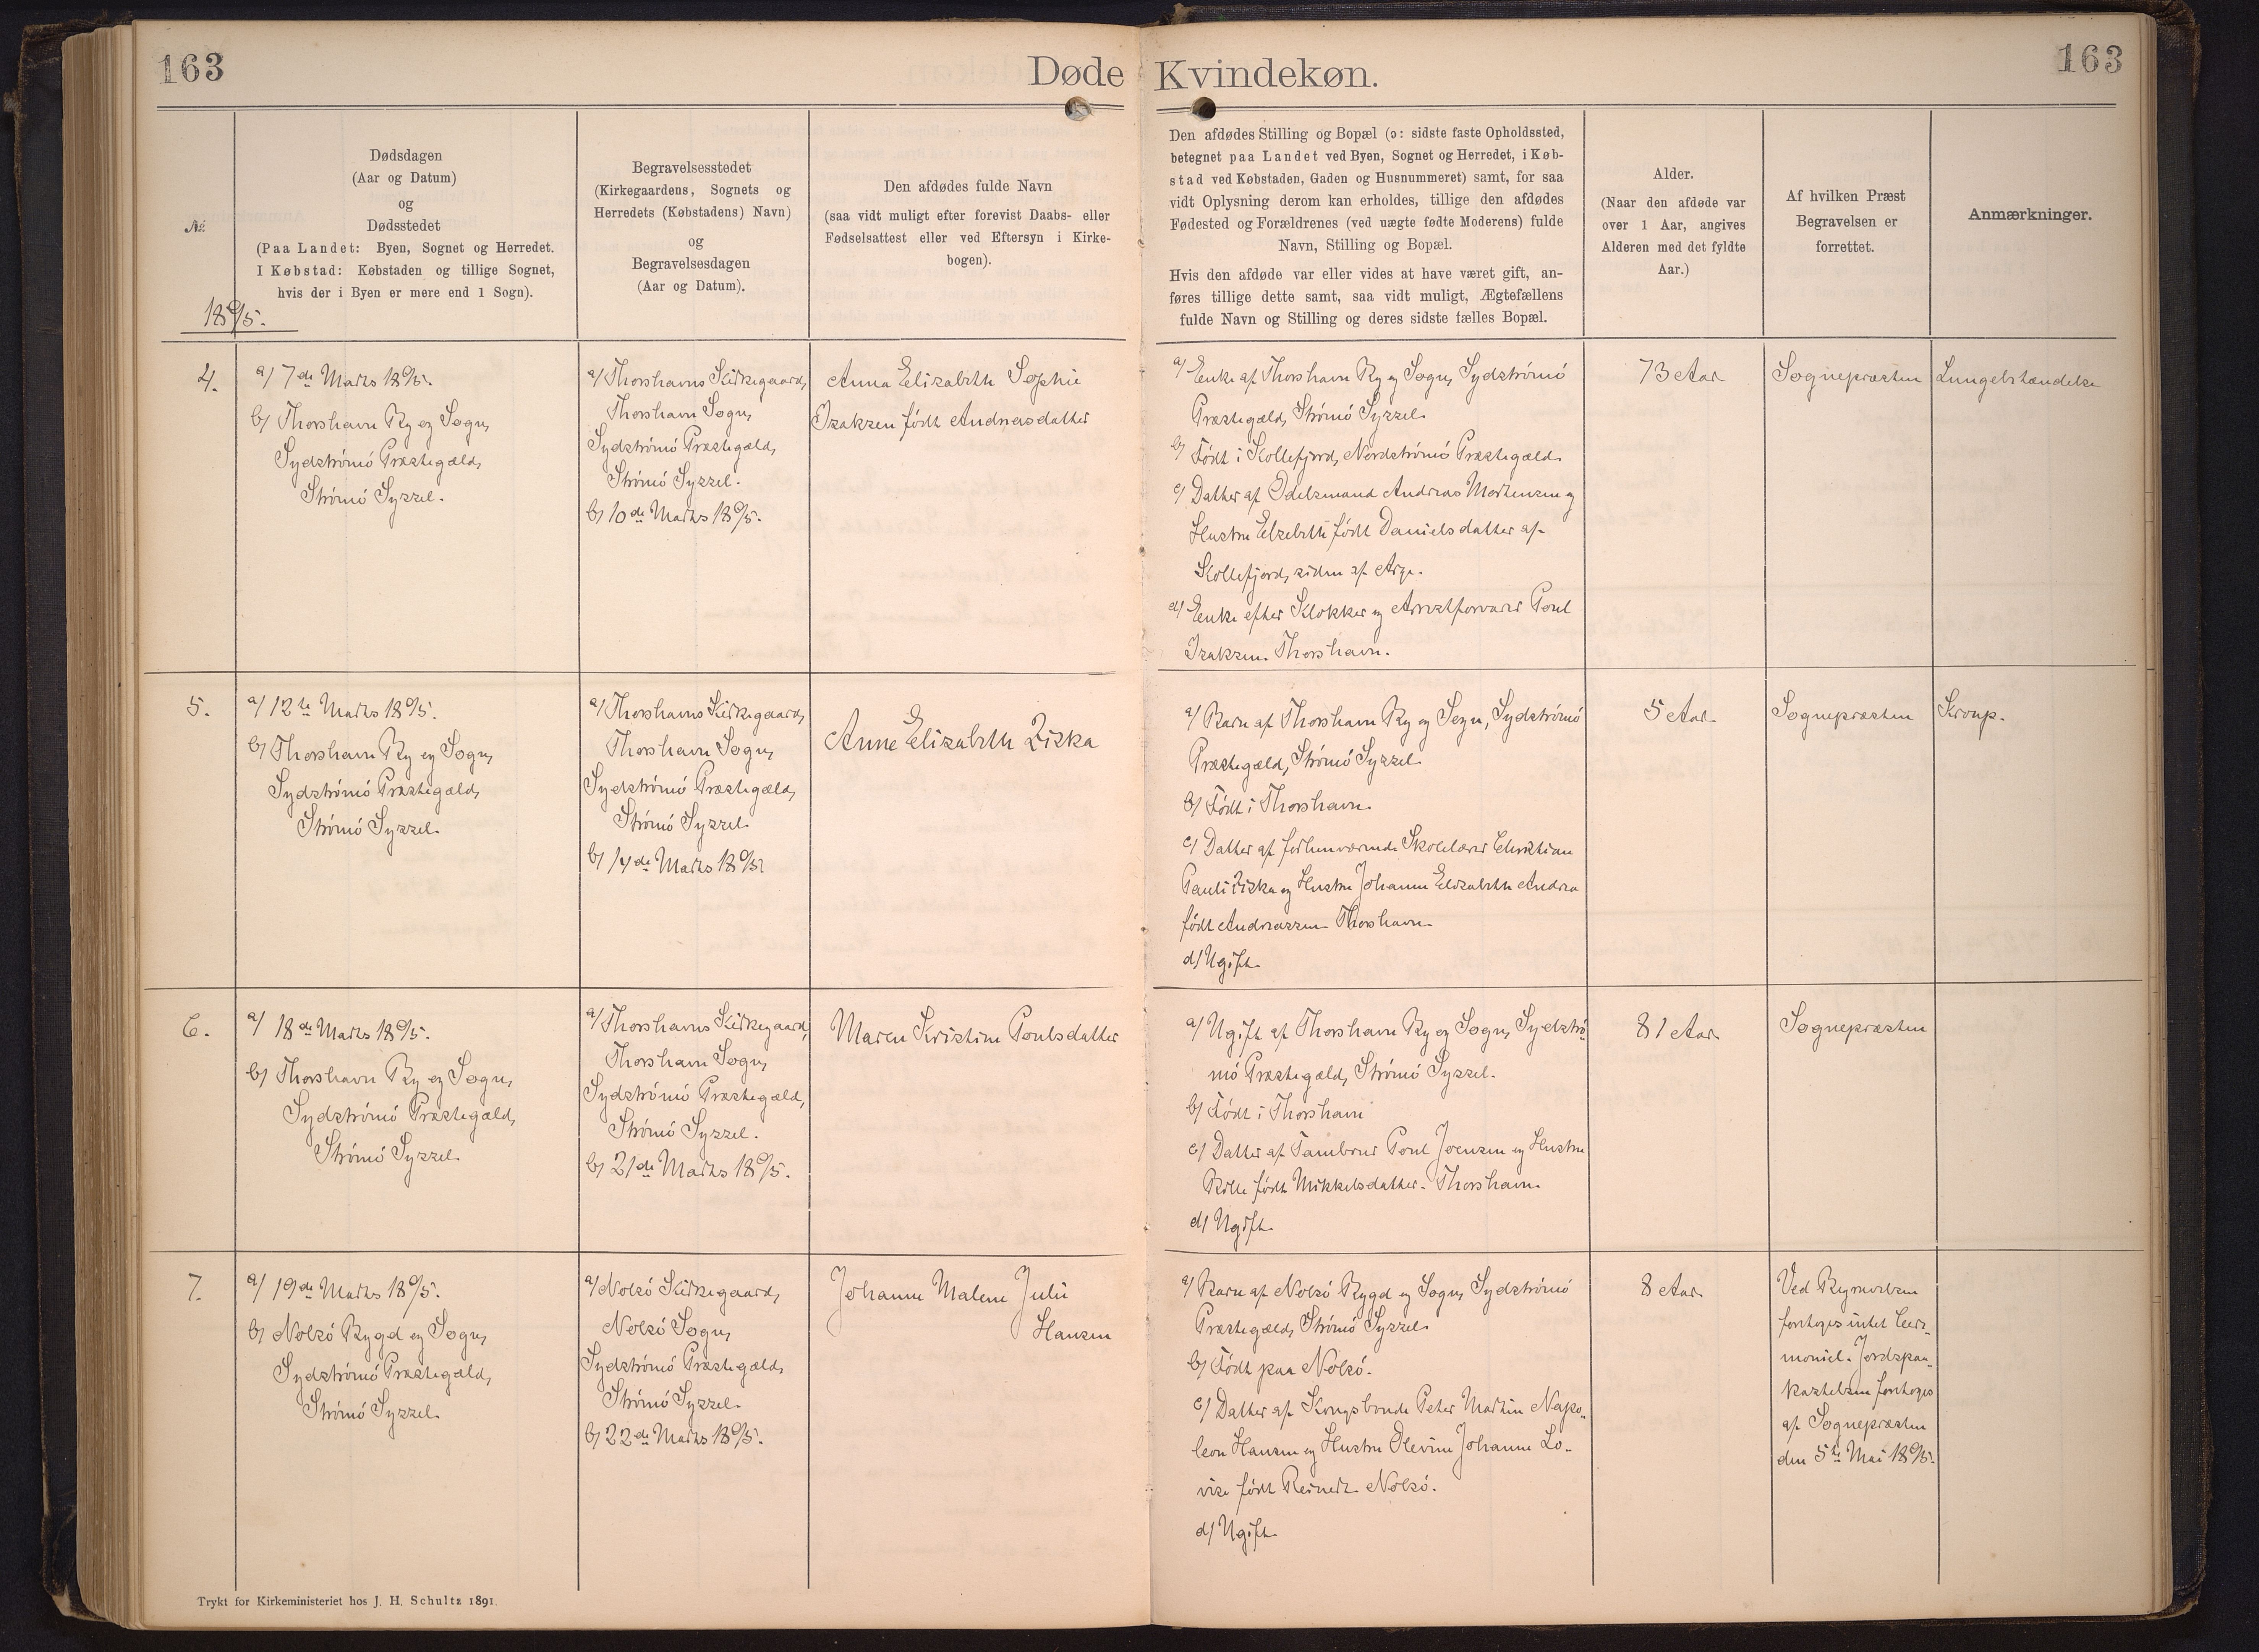 163
Døde Kvindekøn.
163
№
1895.
Dødsdagen
(Aar og Datum)
og
Dødsstedet
(Paa Landet: Byen, Sognet og Herredet.
I Købstad: Købstaden og tillige Sognet,
hvis der i Byen er mere end 1 Sogn).
Begravelsesstedet
(Kirkegaardens, Sognets og
Herredets (Købstadens) Navn)
og
Begravelsesdagen
(Aar og Datum).
Den afdødes fulde Navn
(saa vidt muligt efter forevist Daabs- eller
Fødselsattest eller ved Eftersyn i Kirke-
bogen).
Den afdødes Stilling og Bopæl (ɔ: sidste faste Opholdssted,
betegnet paa Landet ved Byen, Sognet og Herredet, i Køb-
stad ved Købstaden, Gaden og Husnummeret) samt, for saa
vidt Oplysning derom kan erholdes, tillige den afdødes
Fødested og Forældrenes (ved uægte fødte Moderens) fulde
Navn, Stilling og Bopæl.
Hvis den afdøde var eller vides at have været gift, an-
føres tillige dette samt, saa vidt muligt, Ægtefællens
fulde Navn og Stilling og deres sidste fælles Bopæl.
Alder.
(Naar den afdøde var
over 1 Aar, angives
Alderen med det fyldte
Aar.)
Af hvilken Præst
Begravelsen er
forrettet.
Anmærkninger.
4.
a/ 7de Marts 1895.
b/ Thorshavn By og Sogn,
Sydstrømø Præstegæld,
Strømø Syssel.
a/ Thorshavns Kirkegaard,
Thorshavn Sogn,
Sydstrømø Præstegæld,
Strømø Syssel.
b/ 10de Marts 1895.
Anna Elisabeth Sophie
Isaksen født Andreasdatter
a/ Enke af Thorshavn By og Sogn, Sydstrømø
Præstegæld, Strømø Syssel.
b/ Født i Kollefjord, Nordstrømø Præstegæld.
c/ Datter af Odelsmand Andreas Mortensen og
Hustru Elsebeth født Danielsdatter af
Kollefjord, siden af Arge.
d/ Enke efter Klokker og Arrestforvarer Poul
Isaksen. Thorshavn.
73 Aar
Sognepræsten
Lungebetændelse
5.
a/ 12te Marts 1895.
b/ Thorshavn By og Sogn,
Sydstrømø Præstegæld,
Strømø Syssel.
a/ Thorshavns Kirkegaard,
Thorshavn Sogn,
Sydstrømø Præstegæld,
Strømø Syssel.
b/ 14de Marts 1895
Anne Elisabeth Ziska
a/ Barn af Thorshavn By og Sogn, Sydstrømø
Præstegæld, Strømø Syssel.
b/ Født i Thorshavn.
c/ Datter af forhenværende Skolelærer Christian
Pauli Ziska og Hustru Johanne Elisabeth Andrea
født Andreassen. Thorshavn.
d/ Ugift.
5 Aar.
Sognepræsten
Kroup.
6.
a/ 18de Marts 1895.
b/ Thorshavn By og Sogn,
Sydstrømø Præstegæld,
Strømø Syssel.
a/ Thorshavns Kirkegaard,
Thorshavn Sogn,
Sydstrømø Præstegæld,
Strømø Syssel.
b/ 21de Marts 1895.
Maren Kristine Poulsdatter
a/ Ugift af Thorshavn By og Sogn, Sydstrø-
mø Præstegæld, Strømø Syssel.
b/ Født i Thorshavn
c/ Datter af Tambour Poul Joensen og Hustru
Bille født Mikkelsdatter. Thorshavn.
d/ Ugift.
81 Aar.
Sognepræsten
7.
a/ 19de Marts 1895.
b/ Nolsø Bygd og Sogn,
Sydstrømø Præstegæld,
Strømø Syssel.
a/ Nolsø Kirkegaard,
Nolsø Sogn,
Sydstrømø Præstegæld,
Strømø Syssel.
b/ 22de Marts 1895.
Johanne Malene Julie
Hansen
a/ Barn af Nolsø Bygd og Sogn, Sydstrømø
Præstegæld, Strømø Syssel.
b/ Født paa Nolsø.
c/ Datter af Kongsbonde Peter Martin Napo-
leon Hansen og Hustru Olevine Johanne Lo-
vise født Reinert. Nolsø.
d/ Ugift.
8 Aar.
Ved
foretoges intet Cere-
moniel. Jordspaa-
kastelsen foretoges
af Sognepræsten
den 5te Mai 1895.
Trykt for Kirkeministeriet hos J. H. Schultz 1891.